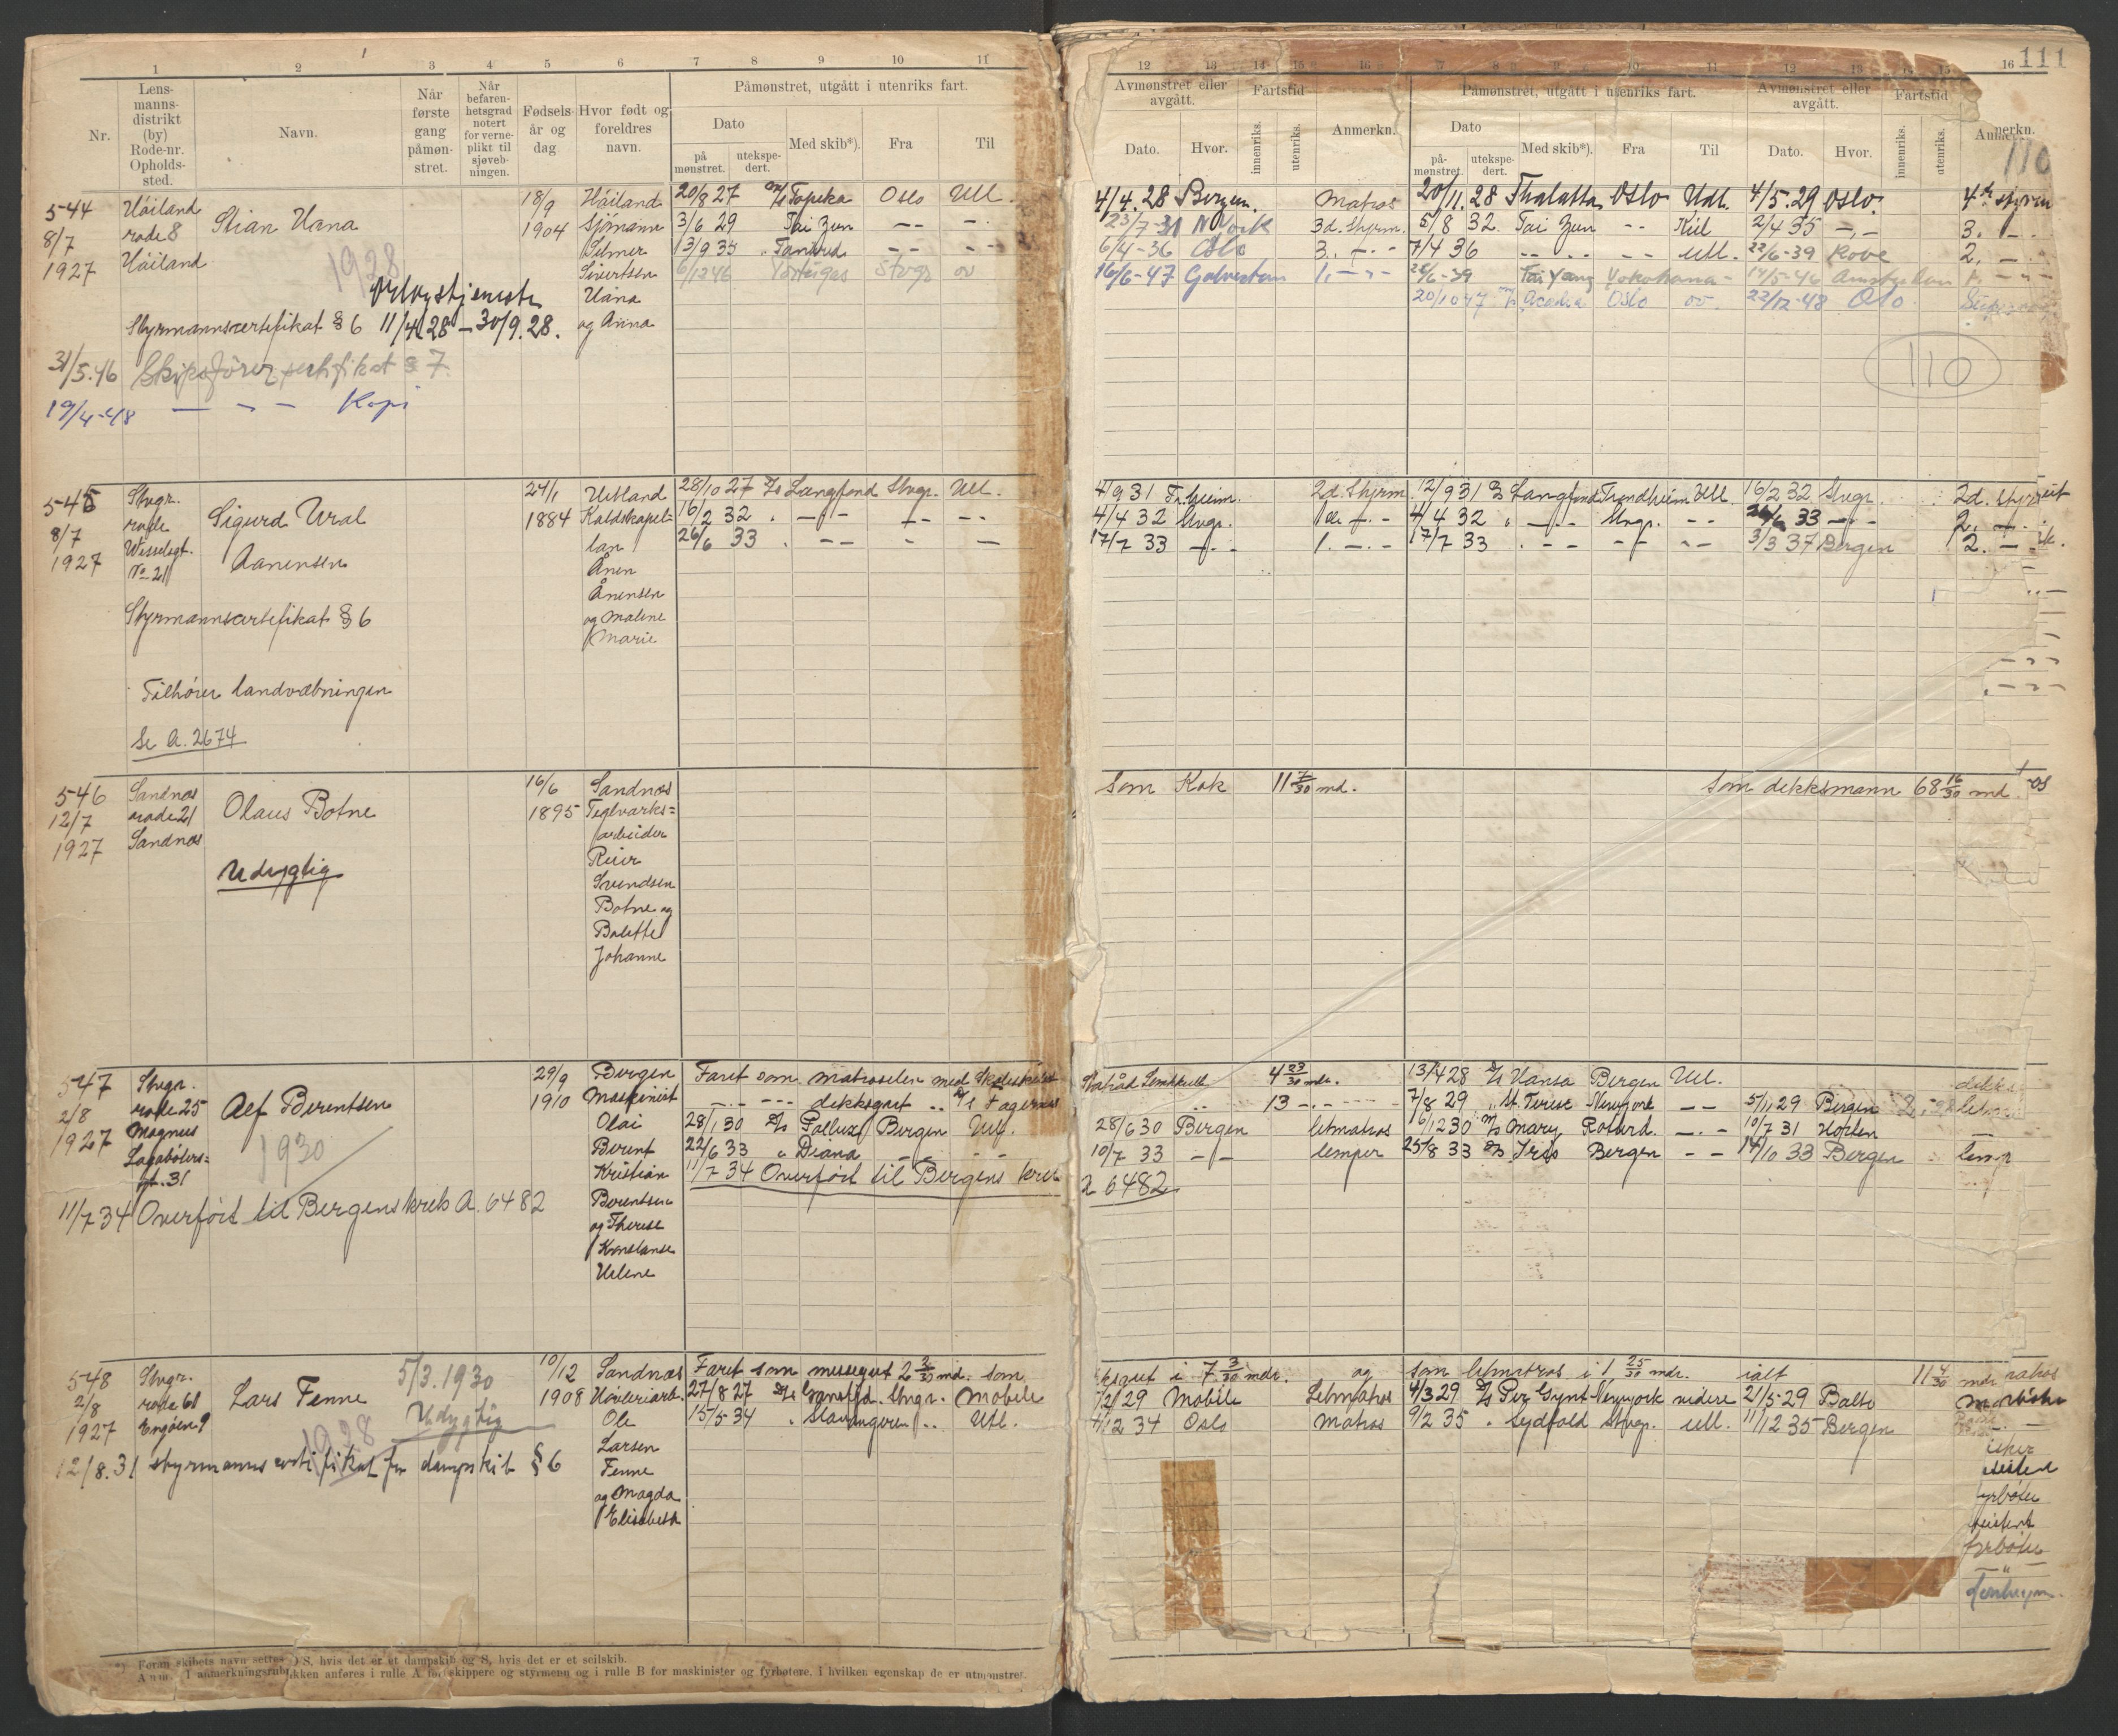 1 2 3 4 5 6 7 8 9 10 11
Nr.
Lens-
manns-
distrikt
(by)
Rode-nr.
Opholds-
sted.
Navn.
Når
første
gang
påmøn-
stret.
Når
befaren-
hetsgrad
notert
for verne-
plikt til
sjøveb-
ningen.
Fødsels-
år og
dag
Hvor født og
foreldres
navn.
Påmønstret, utgått i utenriks fart.
Dato
på
mønstret.
utekspe-
dert.
Med skib*).
Fra
Til
544
8/7
1927
Håiland
rode 8
Håiland
Stian Hana
1928
18/9
1904
Håiland
Sjømann
Selmer
Sivertsen
Hana
og Anna
20/8 27 M/S Topeka Oslo Utl.
3/6 29 Tai Zun -- -.
13/9 35 -- --
6/12 46 Stvgr ov
Styrmannscertifikat § 6 11/4 28 – 30/9. 28.
31/5.46 Skipsfører sertifikat § 7.
19/4-48 — - — Kopi
545
8/7
1927
Stvgr.
rode
No 21
Sigurd Ural
Aanensen
24/1
1884
Hetland
Kaldskapel-
lan
Ånen
Ånensen
og Malene
Marie
28/10 27 D/S Langfond Stvgr. Utl.
16/2 32 . -- -- --
26/6 33 . -- - —
Styrmannscertifikat § 6
Tilhører landvæbningen
Se A. 2674
546
12/7
1927
Sandnes
rode 21
Sandnes
Olaus Botne
Udygtig
16/6
1895
Sandnes
Teglverks=
arbeider
Reier
Svendsen
Botne og
Bolette
Johanne
547
2/8
1927
Stvgr.
rode 25
Magnus
Lagabøters=
gt. 31
Alf Berentsen
1930
29/9
1910
Bergen
Maskinist
Olai
Berent
Kristian
Berentsen
og Therese
Konstanse
Helene
Faret som matroselev med Skoleskibet
—.— --- dekksgut .. D/S Fagernes
28/1 30 D/S Pollux Bergen Utl.
22/6 33 " Diana — -
11/7 34 Overført til Bergens krets
11/7 34 Overført til Bergens krets A. 6482
548
2/8
1927
Stvgr.
rode 61
Engøen 9
Lars Fenne
5/3.1930
Udygtig
1928
10/12
1908
Sandnes
Ole
Larsen
Fenne
og Magda
Elisabeth
Faret som messegut 2 2/30 md. som
27/8 27 D/S Stvgr. Mobile
15/5 34 " Stavangeren .. Utl.
12/8.31 styrmanns certifikat for dampskib § 6
*) Foran skibets navn settes D/S, hvis det er et dampskib og S, hvis det er et seilskib.
Anm. I anmerkningsrubrikken anføres i rulle A for skippere og styrmenn og i rulle B for maskinister og fyrbøtere, i hvilken egenskap de er utmønstret.
111
12 13 14 15 16 7 8 9 10 11 12 13 14 15 16
Avmønstret eller
avgått.
Fartstid
Dato.
Hvor.
innenriks.
utenriks.
Anmerkn.
Påmønstret, utgått i utenriks fart.
Dato
på-
mønstret.
utekspe-
dert.
Med skib*).
Fra
Til
Avmønstret eller
avgått.
Fartstid
Dato.
Hvor.
innenriks.
utenriks.
Anmerkn.
110
4/4. 28 Bergen. Matros 20/11. 28 Thalatta Oslo Utl. 4/5. 29 Oslo. 4de styrm
23/7-31 N York 3d. Styrm. 5/8 32. Tai Zun -- Kiel 2/4 35 -,- 3. —
6/4-36 Oslo 3. -.- 7/4 36 -- .. -- Utl. 22/6-39 Kobe 2. —
16/6-47 Galveston 1. -- 22/6-39 Tai Yang Yokohama - 14/5-46 Amsterdam 1. ---
20/10 47 M/S Acadia Oslo ov. 22/12-48 Oslo
110
4/9 31 Tr.heim. 2d. Styrm. 12/9 31 D/S Langfond Trondheim Utl. 16/2 32 Stvgr. 2d. styrm
4/4 32 Stvgr. 4/4 32 " -.- Stvgr. -- 26/6 33 -.- 2. —
17/7 33 -.- 1. -.- 17/7 33 . -- -- -- 3/3 37 Bergen 2. —
Som Kok 11 7/30 md. Som dekksmann 68 16/30 md.
Statsråd Lehmkuhl 4 23/30 mdr. 13/4 28 D/S Hansa Bergen Utl.
.. 13 -.- 7/8 29 " St. Terese Newyork -- 5/1, 29 Bergen
28/6 30 Bergen letmatros 16/12 30 M/S Mary Rotterd. -.- 10/7 31 Horten —
10/7 33 -- lemper 25/8 33 D/S Iris Bergen -- 14/10 33 Bergen
A 6482
i 7 3/30 mdr. og som letmatros i 1 25/30 mdr. ialt 11 4/30 mdr
2/29 Mobile Letmatros 4/3 29 D/S Per Gynt Newyork videre 21/5-29 Balto
4/12 34 Oslo Matros 9/2 35 " Stvgr. Utl. 11/12 35 Bergen
fyrbøter
fyrbøter